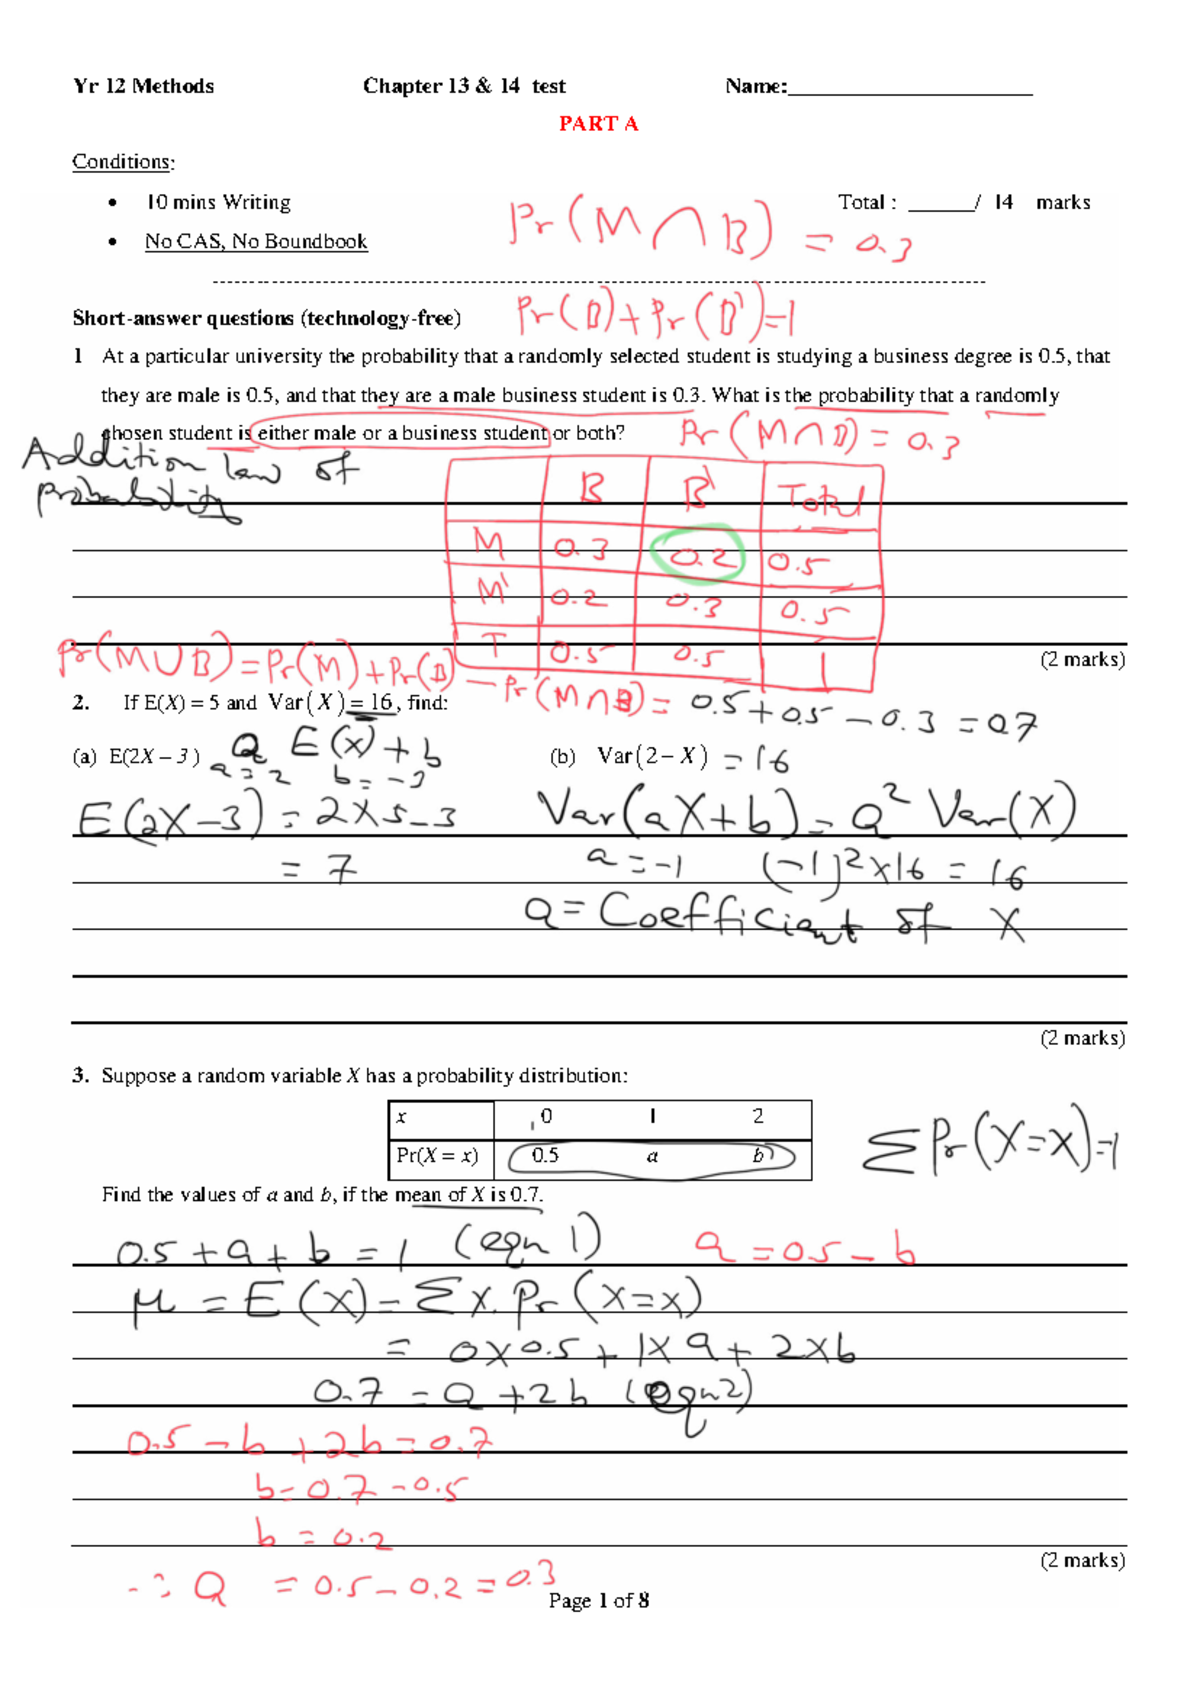 Yr 12 Methods Chapter 13 & 14 test Name:______________________
PART A
Conditions:
• 10 mins Writing Total : ______/ 14 marks
Pr(M∩B) = 0.3
• No CAS, No Boundbook
Pr(B)+Pr(B')=1
Short-answer questions (technology-free)
1 At a particular university the probability that a randomly selected student is studying a business degree is 0.5, that
they are male is 0.5, and that they are a male business student is 0.3. What is the probability that a randomly
chosen student is either male or a business student or both? Pr(M∩B)=0.3
Addition law of
Probability
B B' Total
M 0.3 0.2 0.5
M' 0.2 0.3 0.5
T 0.5 0.5 1
Pr(M∪B)=Pr(M)+Pr(B)-Pr(M∩B)=0.5+0.5-0.3=0.7
(2 marks)
2. If E(X) = 5 and Var(X) = 16, find:
(a) E(2X – 3) a E(x)+b (b) Var(2– X) =16
a=2 b=-3
E(2X-3)=2x5-3 Var(aX+b)=a² Var(X)
=7 a=-1 (-1)²x16=16
a=Coefficient of X
(2 marks)
3. Suppose a random variable X has a probability distribution:
x 0 1 2
Pr(X = x) 0.5 a b
ΣPr(X=x)=1
Find the values of a and b, if the mean of X is 0.7.
0.5+a+b=1 (eqn 1) a=0.5-b
μ=E(X)=Σx.Pr(X=x)
=0x0.5+1xa+2xb
0.7=a+2b (eqn2)
0.5-b+2b=0.7
b=0.7-0.5
b=0.2
(2 marks)
∴ a =0.5-0.2=0.3
Page 1 of 8